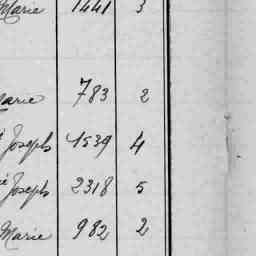 Marie 1441 3
Marie 783 2
Joseph 1539 4
Joseph 2318 5
Marie 982 2